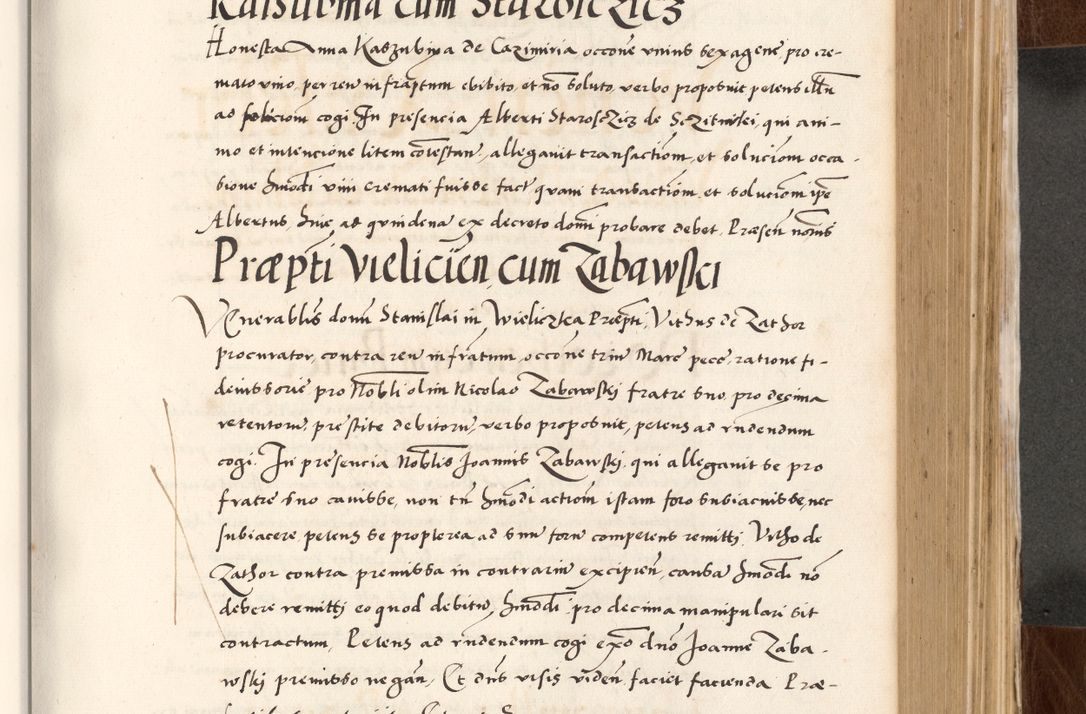 Kaisubma cum Starosczicz
Honesta Anna Kaszubiya de Cazimiria, occone unius sexagene, pro cre-
mato vino, per reu infraptum ebibito, et no soluto, verbo proposuit petens illu
ad soluciom cogi. In presencia Alberti Starosczicz de Sczitniki, qui ani-
mo et intencione litem cotestan, allegavit transactiom, et soluciom occa-
sione hmodi vini cremati fuisse fact quam transactiom et soluciom ipe
Albertus, huic ad quindena ex decreto domi probare debet, Præsen notis
Præpti Vieliciēn, cum Zabawski
Venerablis domi Stanislai in Wieliczka Præpti, Vithus de Zathor
procurator, contra reu infratum, occone triu Marc pece, ratione fi-
deiussorie pro Nobli olim Nicolao Zabawski fratre suo, pro decima
retentoru prestite debitoru, verbo proposuit, petens ad rndendum
cogi. In presencia Noblis Joannis Zabawski, qui allegavit se pro
fratre suo cavisse, non tn hmodi actiom istam foro subiacuisse, nec
subiacere petens se propterea ad suu foru competens remitti. Vitho de
Zathor contra premissa in contrariu excipien, causa hmodi no
debere remitti eo quod debitu, hmodi pro decima manipulari sit
contractum, Petens ad rndendum cogi expo dno Joanne Zaba-
wski premisso negan, Et dns visis viden faciet facienda Præ-